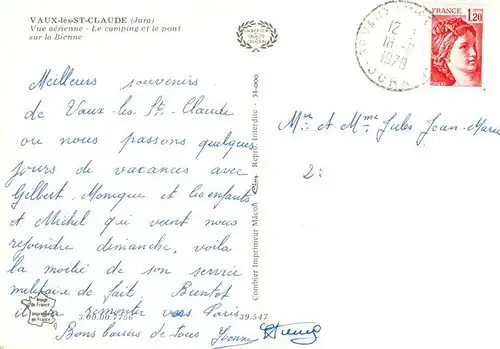 VAUX-lès-St-CLAUDE (Jura)
Vue aérienne - Le camping et le pont
sur la Bienne
Meilleurs souvenirs
de Vaux-les St. Claude
ou nous passons quelques
jours de vacances avec
Gilbert, Monique et les enfants
et Michel qui vient nous
rejoindre dimanche, voila
la moitié de son service
militaire de fait. Bientot
il va remonter vers Paris
Bons baisers de tous Yvonne
3.00.00.7756
39.547
Image de France
Imprimée en France
Combier Imprimeur Mâcon
Reprod. Interdite - 34-000
FRANCE
1,20
POSTES
12
18-
1979
JURA
Mr et Mme Jules Jean-Marie
2: